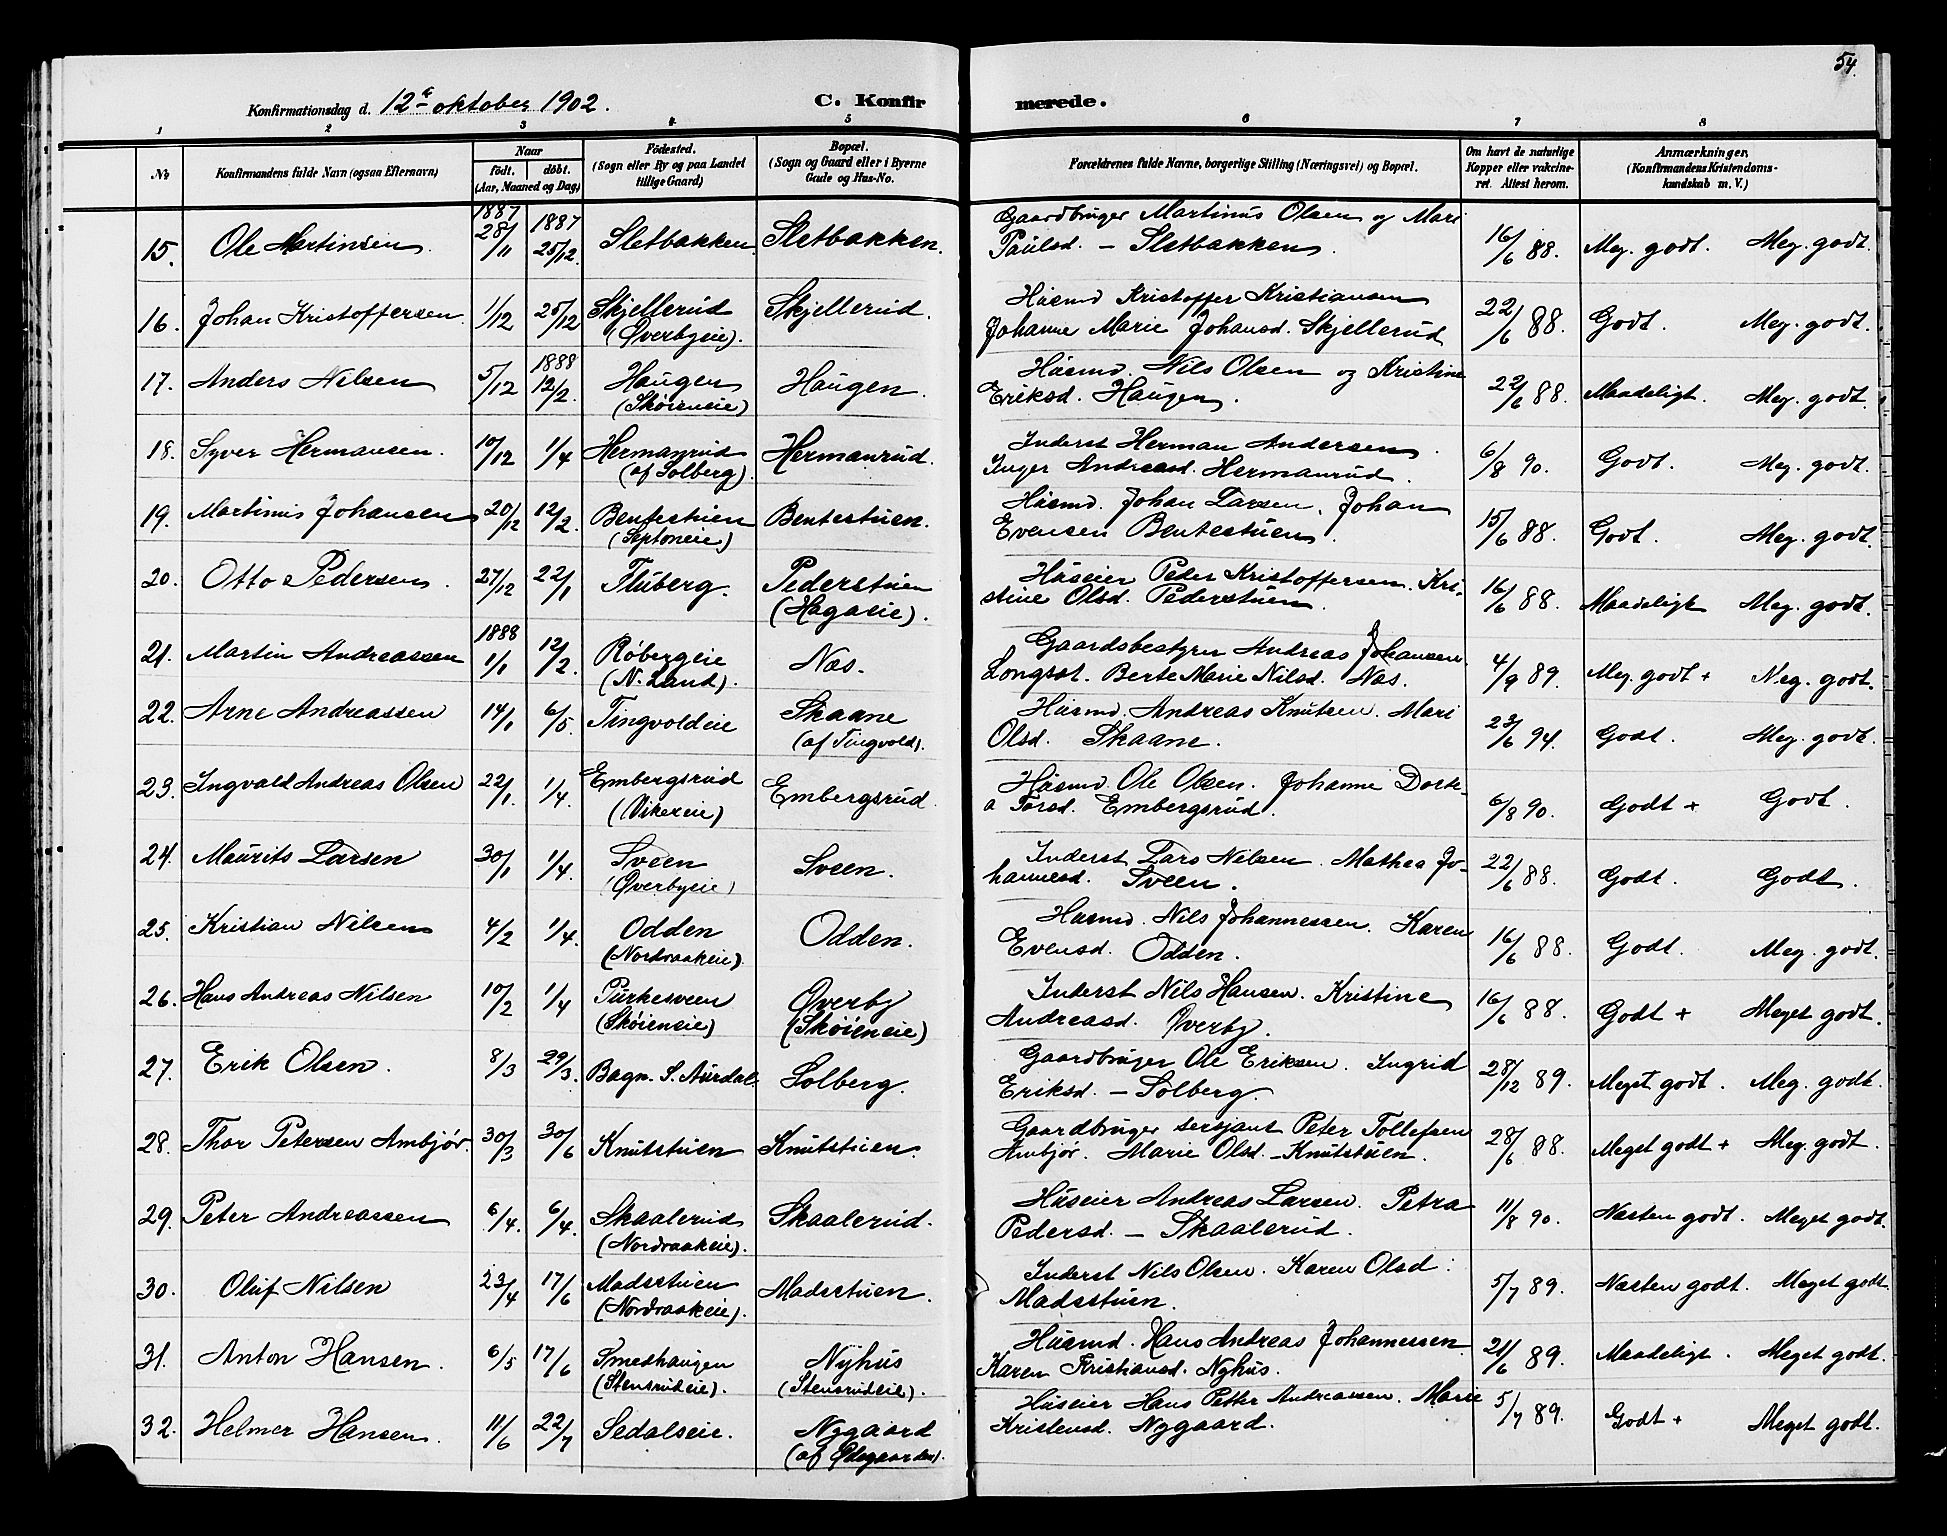 54.
Konfirmationsdag d. 12te oktober 1902. C. Konfirmerede.
1 2 3 4 5 6 7 8
No Konfirmandens fulde Navn (ogsaa Efternavn) Naar födt. döbt. (Aar, Maaned og Dag) Födested. (Sogn eller By og paa Landet tillige Gaard) Bopæl. (Sogn og Gaard eller i Byerne Gade og Hus-No. Forældrenes fulde Navne, borgerlige Stilling (Næringsvei) og Bopæl. Om havt de naturlige Kopper eller vakcineret. Attest herom. Anmærkninger, (Konfirmandens Kristendomskundskab m. V.)
15. Ole Martinsen. 1887 28/11 1887 25/12. Sletbakken Sletbakken. Gaardbruger Martinus Olsen og Mari
Paulsd. – Sletbakken. 16/6 88. Meg. godt. Meg. godt.
16. Johan Kristoffersen. 1/12 25/12 Skjellerud Skjellerud. Husmd Kristoffer Kristiansen
(Øverbyeie). Johanne Marie Johansd. Skjellerud 22/6 88. Godt. Meg. godt.
17. Anders Nilsen 5/12 1888 12/2. Haugen Haugen. Husmd. Nils Olsen og Kristine
(Skøieneie) Eriksd. Haugen. 22/6 88. Maadeligt. Meg. godt.
18. Syver Hermansen. 10/12 1/4 Hermanrud Hermanrud. Inderst Herman Andersen.
(af Solberg). Inger Andreasd. Hermanrud. 6/8 90. Godt. Meg. godt.
19. Martinus Johansen 20/12 12/2. Bentestuen Bentestuen. Husmd. Johan Larsen. Johan
(Septoneie) Evensen Bentestuen. 15/6 88. Godt. Meg. godt.
20. Otto Pedersen. 27/12 22/1 Fluberg. Pederstuen Huseier Peter Kristoffersen. Kri-
(Hagaeie). stine Olsd. Pederstuen. 16/6 88. Maadeligt Meg. godt.
21. Martin Andreassen 1888 1/1 12/2. Røbergeie Næs. Gaardsbestyrer Andreas Johansen
(N. Land). Longsæt. Berte Marie Nilsd. Næs. 4/9 89. Meg. godt + Meg. godt.
22. Arne Andreassen 14/1 6/5. Tingvoldeie Skaane Husmd. Andreas Knutsen. Mari
(af Tingvold). Olsd. Skaane. 23/6 94. Godt. Meg. godt.
23. Ingvald Andreas Olsen 22/1. 1/4. Embergsrud Embergsrud. Husmd. Ole Olsen. Johanne Dorte-
(Vikereie) a Torsd. Embergsrud. 6/8 90. Godt + Godt.
24. Maurits Larsen 30/1 1/4. Sveen Sveen. Inderst Lars Nilsen. Mathea Jo-
(Øverbyeie) hannesd. Sveen. 22/6 88. Godt. Godt.
25. Kristian Nilsen 4/2 1/4. Odden Odden. Husmd. Nils Johannessen. Karen
(Nordraakeie). Evensd. Odden. 16/6 88. Godt. Meg. godt.
26. Hans Andreas Nilsen 10/2 1/4 Purkesveen Øverby Inderst Nils Hansen. Kristine
(Skøieneie) (Skøieneie) Andreasd. Øverby. 16/6 88. Godt + Meget godt.
27. Erik Olsen. 8/3 29/3. Bagn. S. Aurdal Solberg. Gaardbruger Ole Eriksen. Ingrid
Eriksd. – Solberg. 28/12 89. Meget godt. Meg. godt.
28. Thor Petersen Ambjør. 30/3 30/6 Knutstuen Knutstuen. Gaardbruger sersjant Peter Tollefsen
Ambjør. Marie Olsd. – Knutstuen. 28/6 88. Meget godt + Meg. godt.
29. Peter Andreassen 6/4. 6/4. Skaalerud Skaalerud. Huseier Andreas Larsen. Petra
(Nordraakeie). Pedersd. – Skaalerud. 11/8 90. Næsten godt. Meget godt.
30. Oluf Nilsen 23/4 17/6 Madsstuen Madsstuen. Inderst Nils Olsen. Karen Olsd.
(Nordraakeie). Madsstuen. 5/7 89. Næsten godt. Meget godt.
31. Anton Hansen. 6/5 17/6 Smedhaugen Nyhus Husmd. Hans Andreas Johannessen.
(Stensrudeie). (Stensrudeie). Karen Kristiansd. Nyhus. 21/6 89. Maadeligt. Meget godt.
32. Helmer Hansen. 11/6 22/7 Sedalseie. Nygaard Huseier Hans Petter Andreassen. Marie
(af Ødegaarden). Kristensd. Nygaard. 5/7 89. Godt + Meget godt.